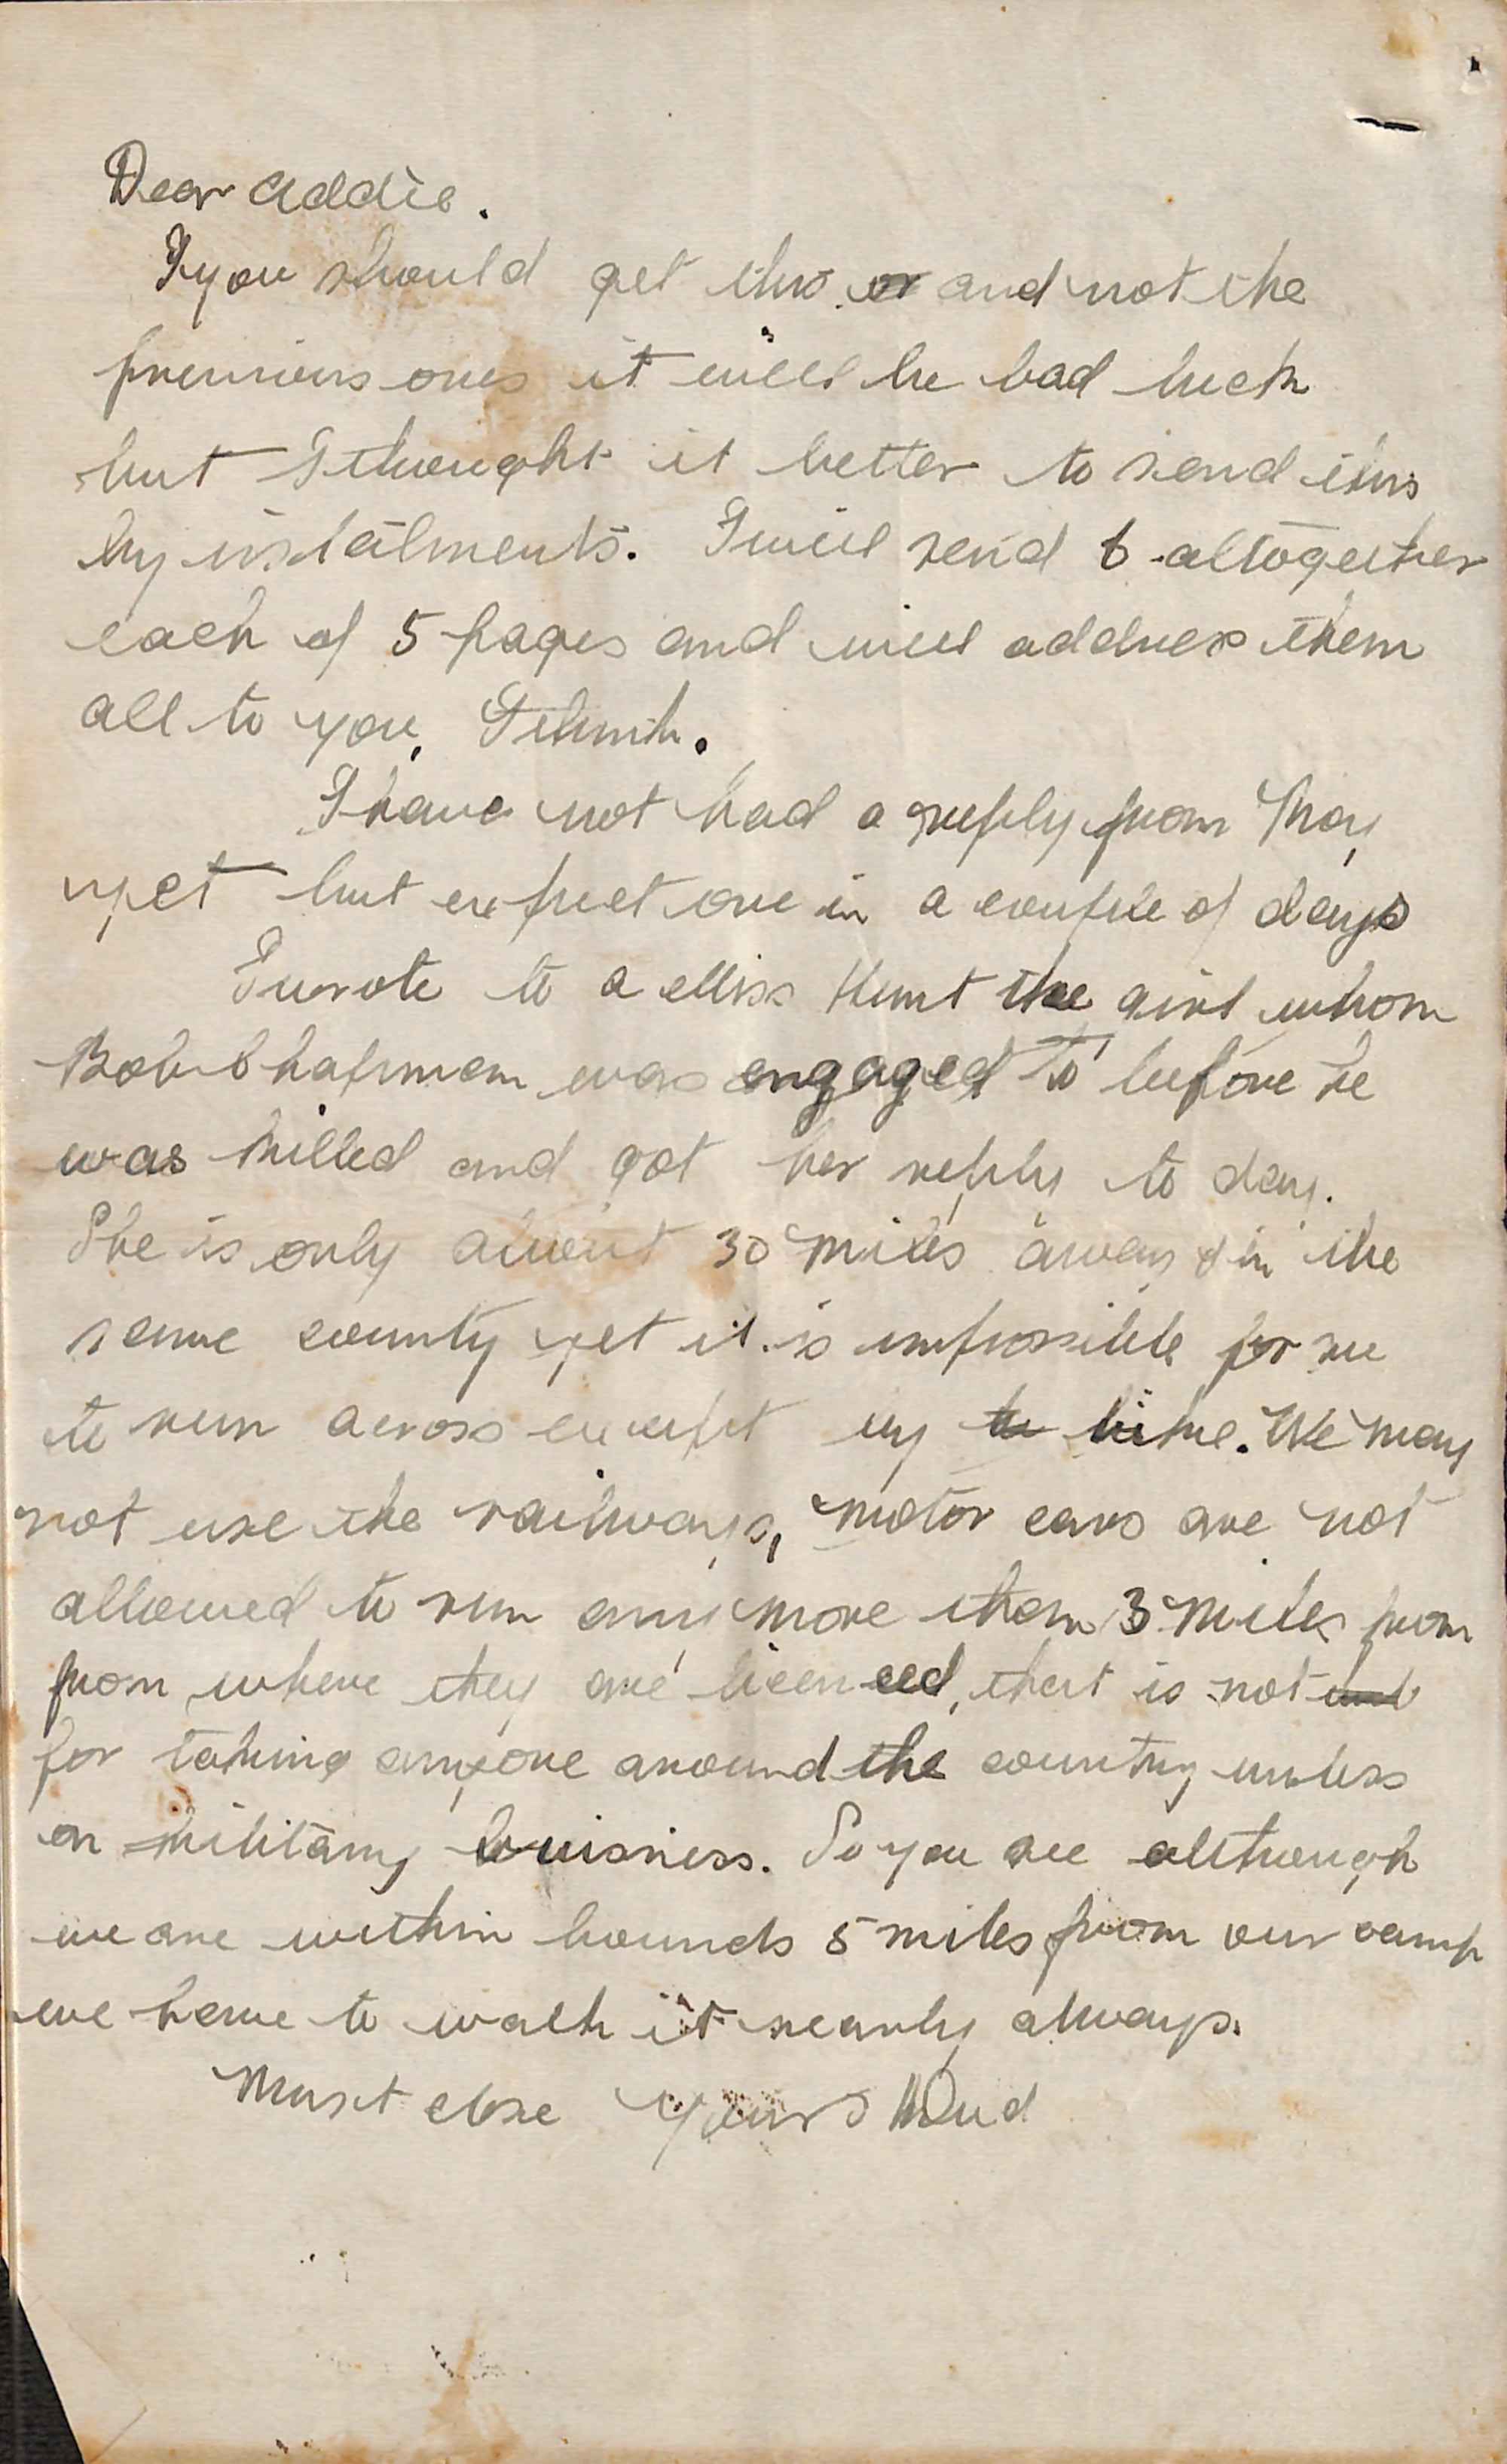 Dear Addie.
If you should get this or and not the
previous ones it will be bad luck
but I thought it better to send this
by instalments. I will send 6 altogether
each of 5 pages and will address them
all to you, I think.
I have not had a reply from May
yet but expect one in a couple of days
I wrote to a Miss Hunt the girl whom
Bob Chapman was engaged to before he
was killed and got her reply to day.
She is only about 30 miles away & in the
same county yet it is impossible for me
to run across except by bike. We may
not use the railways, motor cars are not
allowed to run any more than 3 miles from
from where they are licenced, that is not
for taking anyone around the country unless
on military buisness. So you see although
we are within bounds 5 miles from our camp
we have to walk it nearly always.
Must close Yours Dud